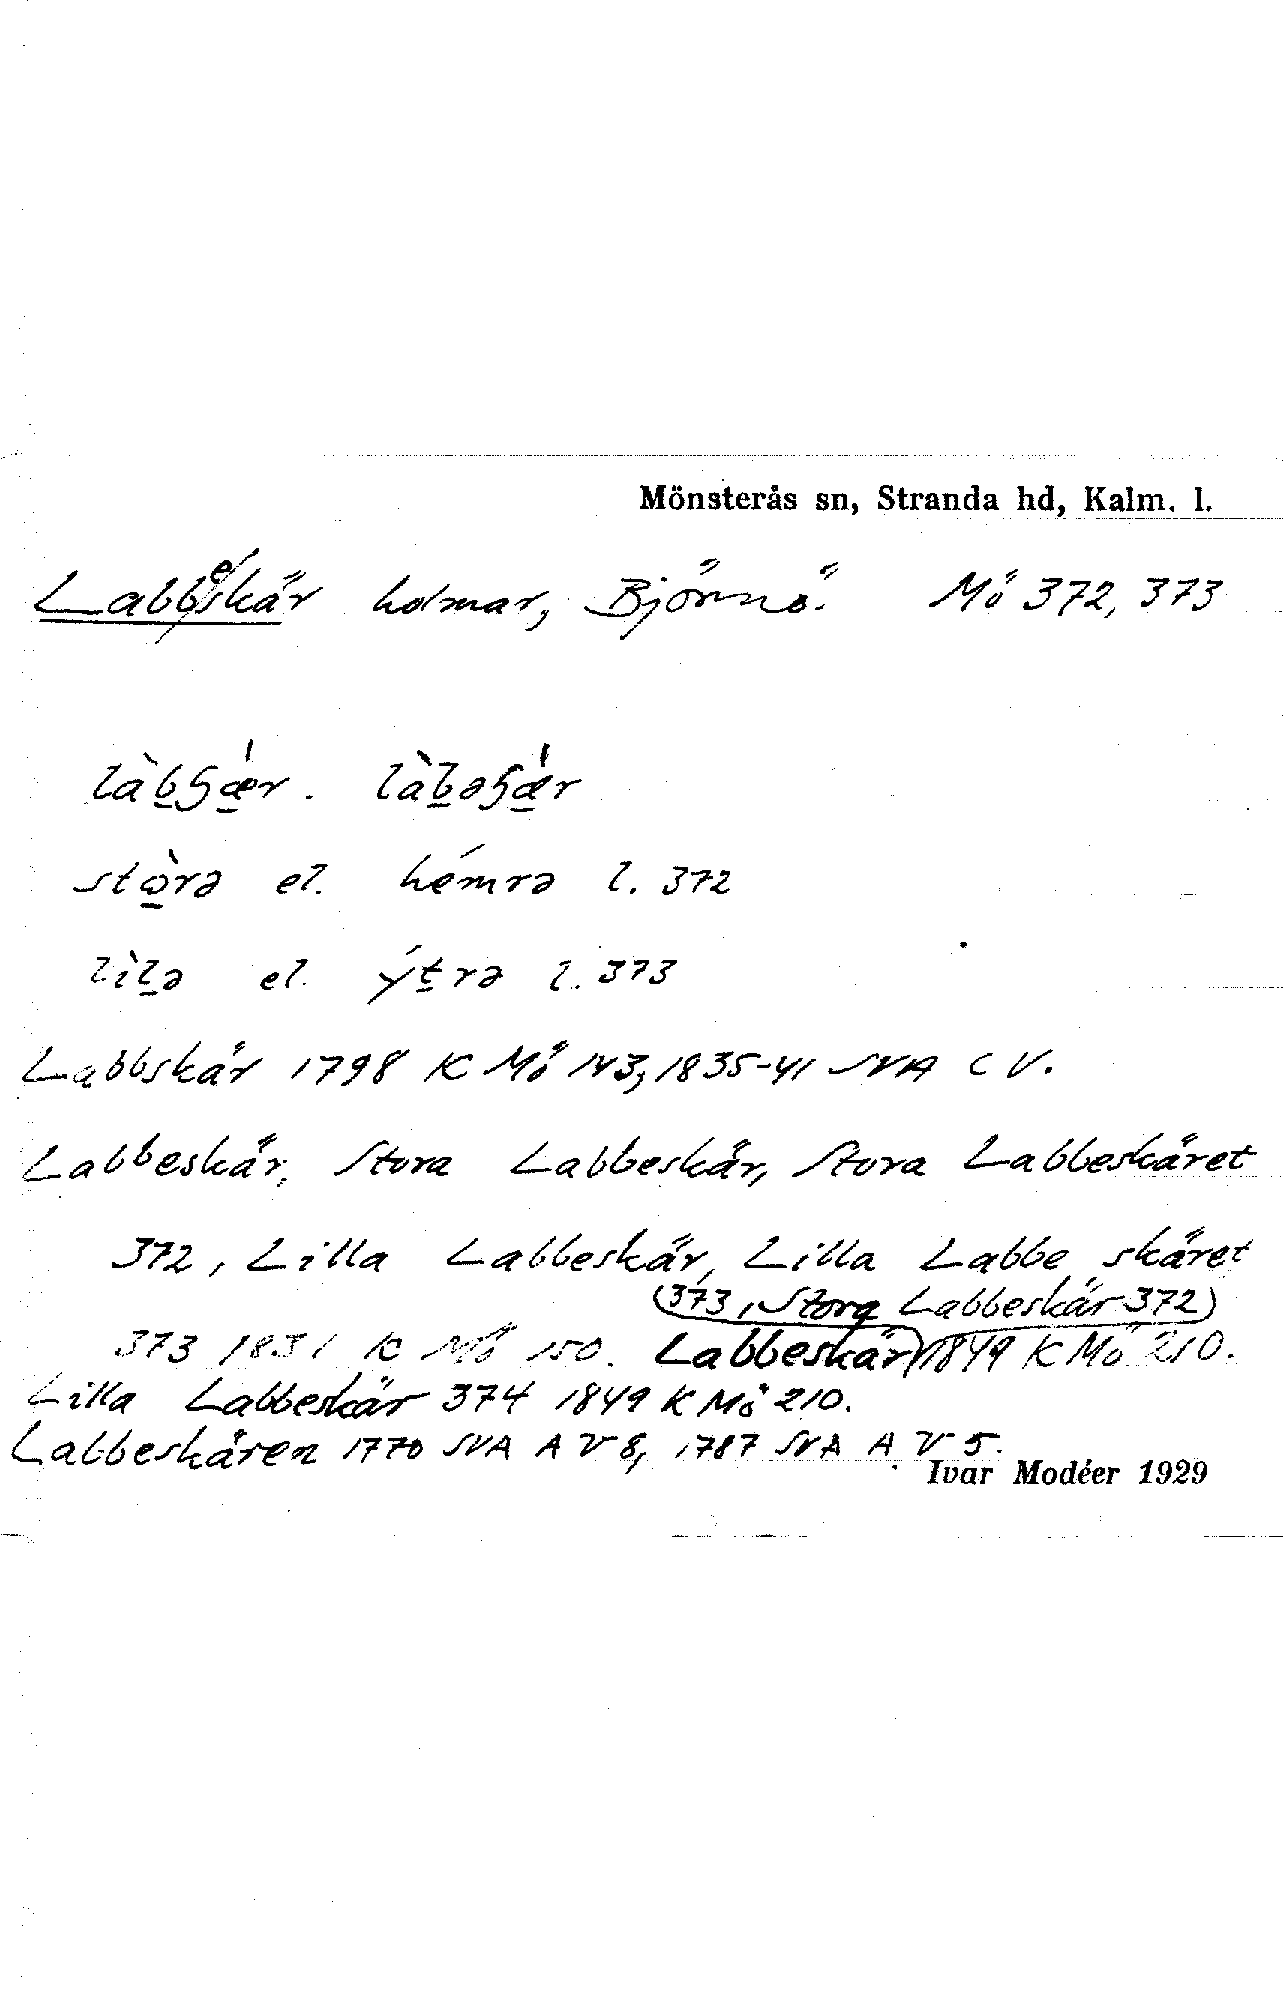 Mönsterås sn, Stranda hd, Kalm. l.
Labbeskär holmar, Björnö. Mö 372, 373
làbʃǽr. làbəʃǽr
stòrə el. hémrə l. 372
lìlə el. ýtrə l. 373
Labbskär 1798 K Mö 143, 1835-41 SVA C V.
Labbeskär, Stora Labbeskär, Stora Labbeskäret
372, Lilla Labbeskär, Lilla Labbe skäret
(373, Stora Labbeskär 372)
373 1831 K Mö 150. Labbeskär 1849 K Mö 210.
Lilla Labbeskär 374 1849 K Mö 210.
Labbeskären 1770 SVA A V 8, 1787 SVA A V 5.
Ivar Modéer 1929